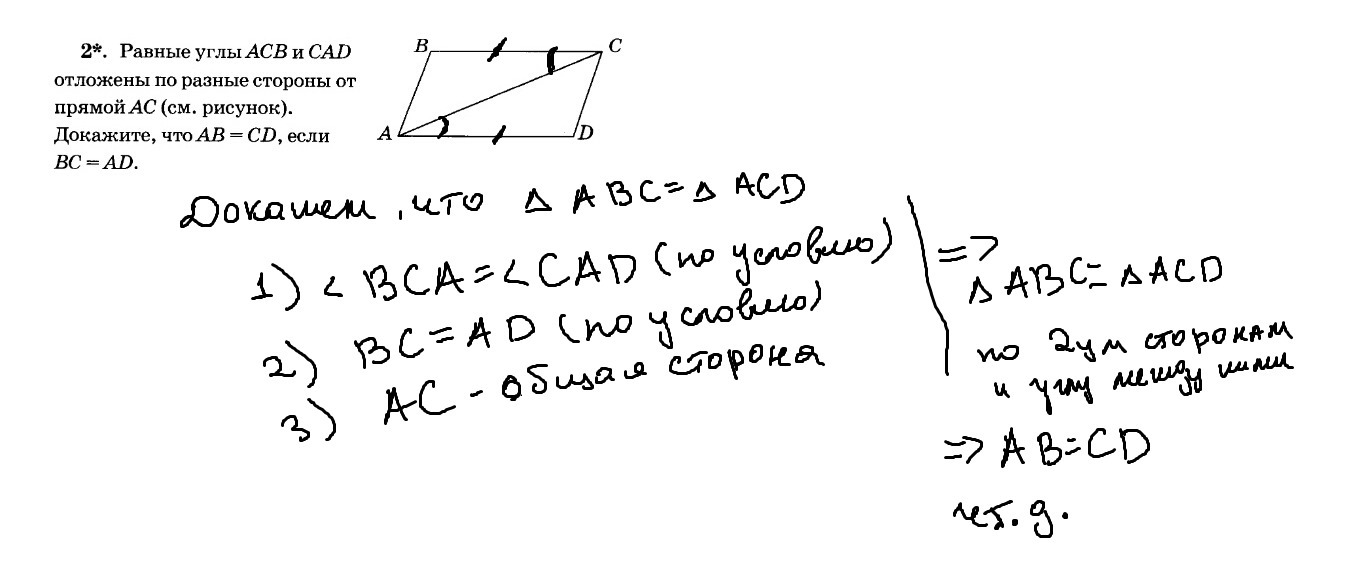 2*. Равные углы ACB и CAD
отложены по разные стороны от
прямой AC (см. рисунок).
Докажите, что AB = CD, если
BC = AD.
B
C
A
D
Докажем, что Δ ABC = Δ ACD
1) < BCA = < CAD (по условию)
2) BC = AD (по условию)
3) AC - общая сторона
=>
Δ ABC = Δ ACD
по 2ум сторонам
и углу между ними
=> AB = CD
чт.д.